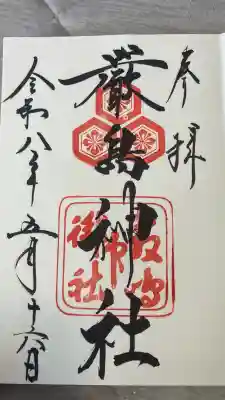 奉拝
厳島神社
令和八年五月十六日